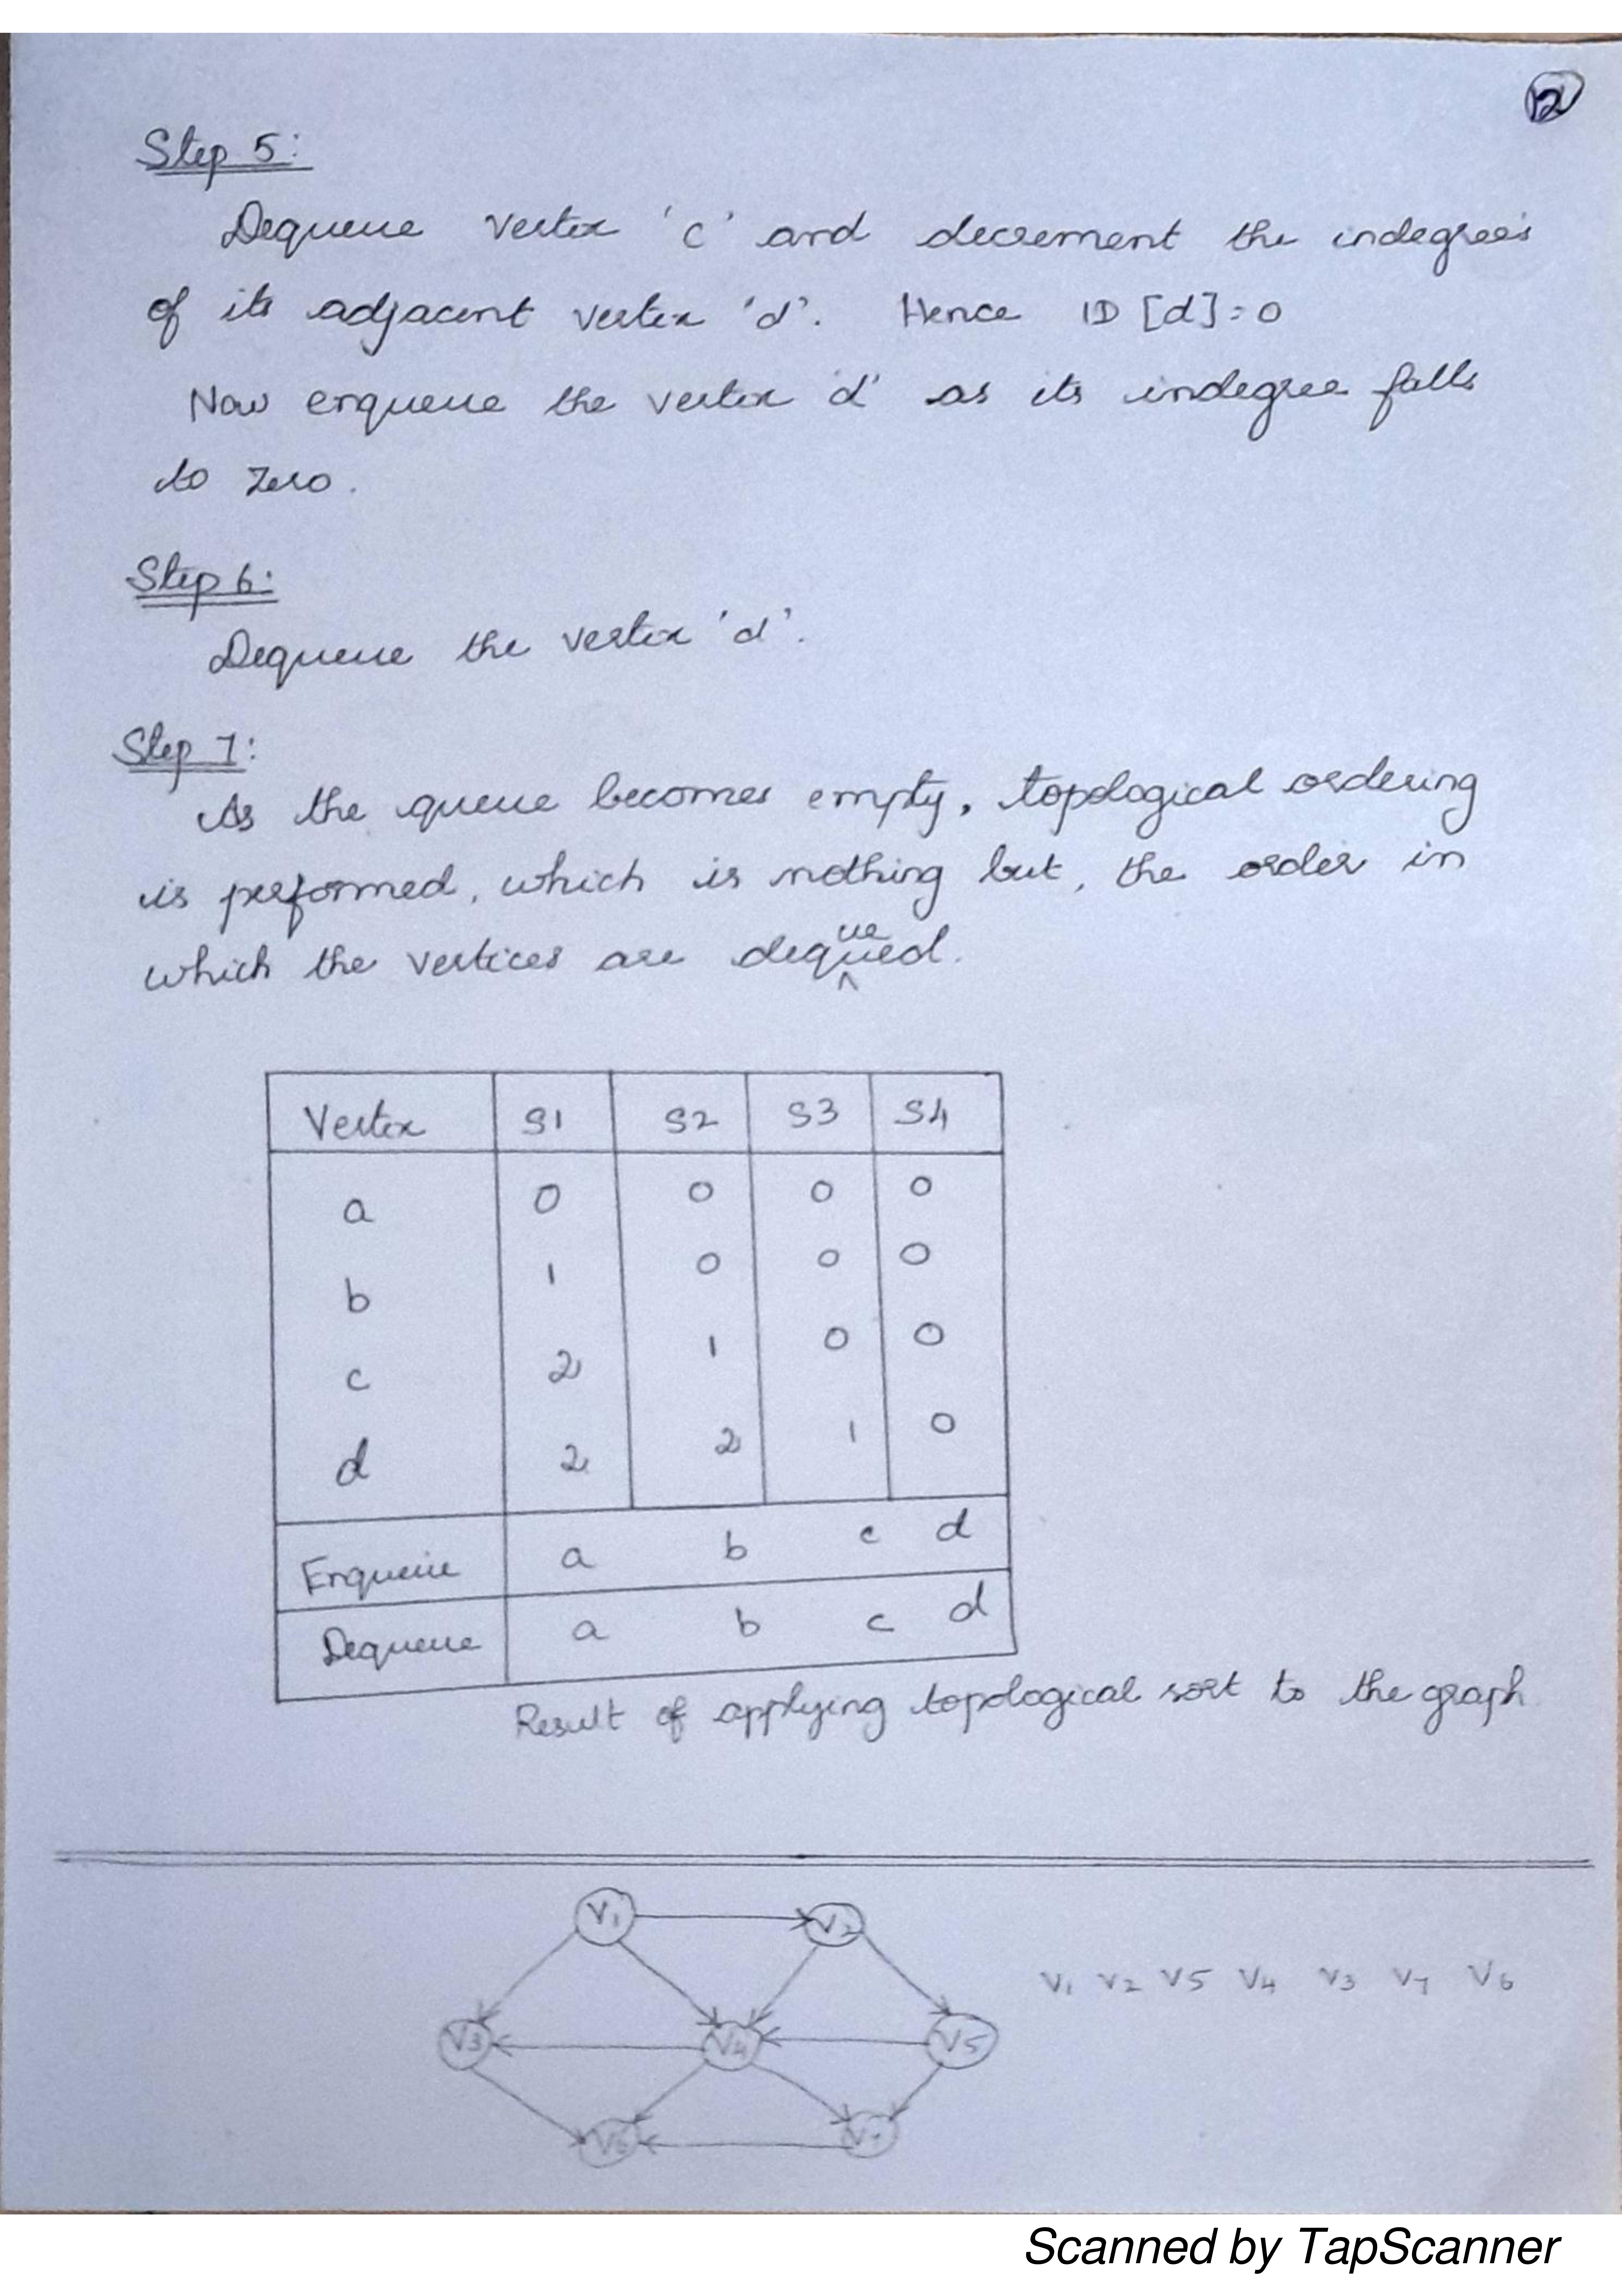 12
Step 5:
Dequeue vertex 'c' and decrement the indegree's
of its adjacent vertex 'd'. Hence ID [d]=0
Now enqueue the vertex 'd' as its indegree falls
to zero.
Step 6:
Dequeue the vertex 'd'.
Step 7:
As the queue becomes empty, topological ordering
is performed, which is nothing but, the order in
which the vertices are dequeued.
Vertex S1 S2 S3 S4
a 0 0 0 0
b 1 0 0 0
c 2 1 0 0
d 2 2 1 0
Enqueue a b c d
Dequeue a b c d
Result of applying topological sort to the graph
V1 V2
V1 V2 V5 V4 V3 V7 V6
V3 V4 V5
V6 V7
Scanned by TapScanner